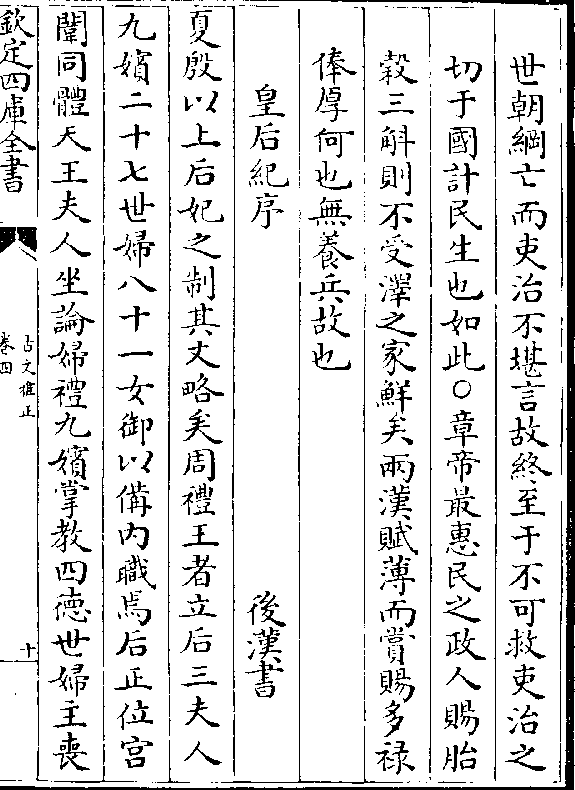 世朝綱亡而吏治不堪言故終至于不可救吏治之
切于國計民生也如此○章帝最惠民之政人賜胎
穀三斛則不受澤之家鮮矣兩漢賦薄而賞賜多祿
俸厚何也無養兵故也
皇后紀序 後漢書
夏殷以上后妃之制其文略矣周禮王者立后三夫人
九嬪二十七世婦八十一女御以備内職焉后正位宮
闈同體天王夫人坐論婦禮九嬪掌教四德世婦主喪
欽定四庫全書
古文雅正
卷四
十